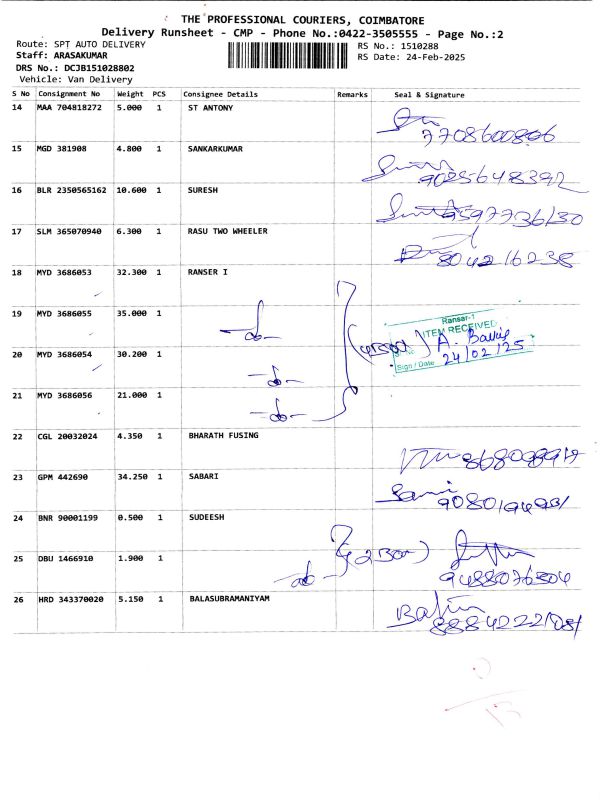 THE PROFESSIONAL COURIERS, COIMBATORE
Delivery Runsheet - CMP - Phone No.:0422-3505555 - Page No.:2
Route: SPT AUTO DELIVERY
Staff: ARASAKUMAR
DRS No.: DCJB151028802
Vehicle: Van Delivery
RS No.: 1510288
RS Date: 24-Feb-2025
S No Consignment No Weight PCS Consignee Details Remarks Seal & Signature
14 MAA 704818272 5.000 1 ST ANTONY
7708600806
15 MGD 381908 4.800 1 SANKARKUMAR
9085648392
16 BLR 2350565162 10.600 1 SURESH
9597736130
17 SLM 365070940 6.300 1 RASU TWO WHEELER
8042216238
18 MYD 3686053 32.300 1 RANSER I
19 MYD 3686055 35.000 1
-do-
Ransar-1
ITEM RECEIVED
Sign / Date
24/02/25
20 MYD 3686054 30.200 1
-do-
21 MYD 3686056 21.000 1
-do-
22 CGL 20032024 4.350 1 BHARATH FUSING
23 GPM 442690 34.250 1 SABARI
24 BNR 90001199 0.500 1 SUDEESH
25 DBU 1466910 1.900 1
-do-
9488076304
26 HRD 343370020 5.150 1 BALASUBRAMANIYAM